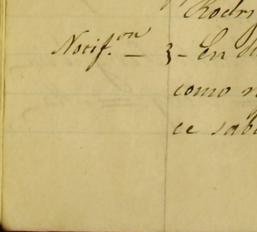 Rodri
Notif.on — 3 - En
como
ce sab